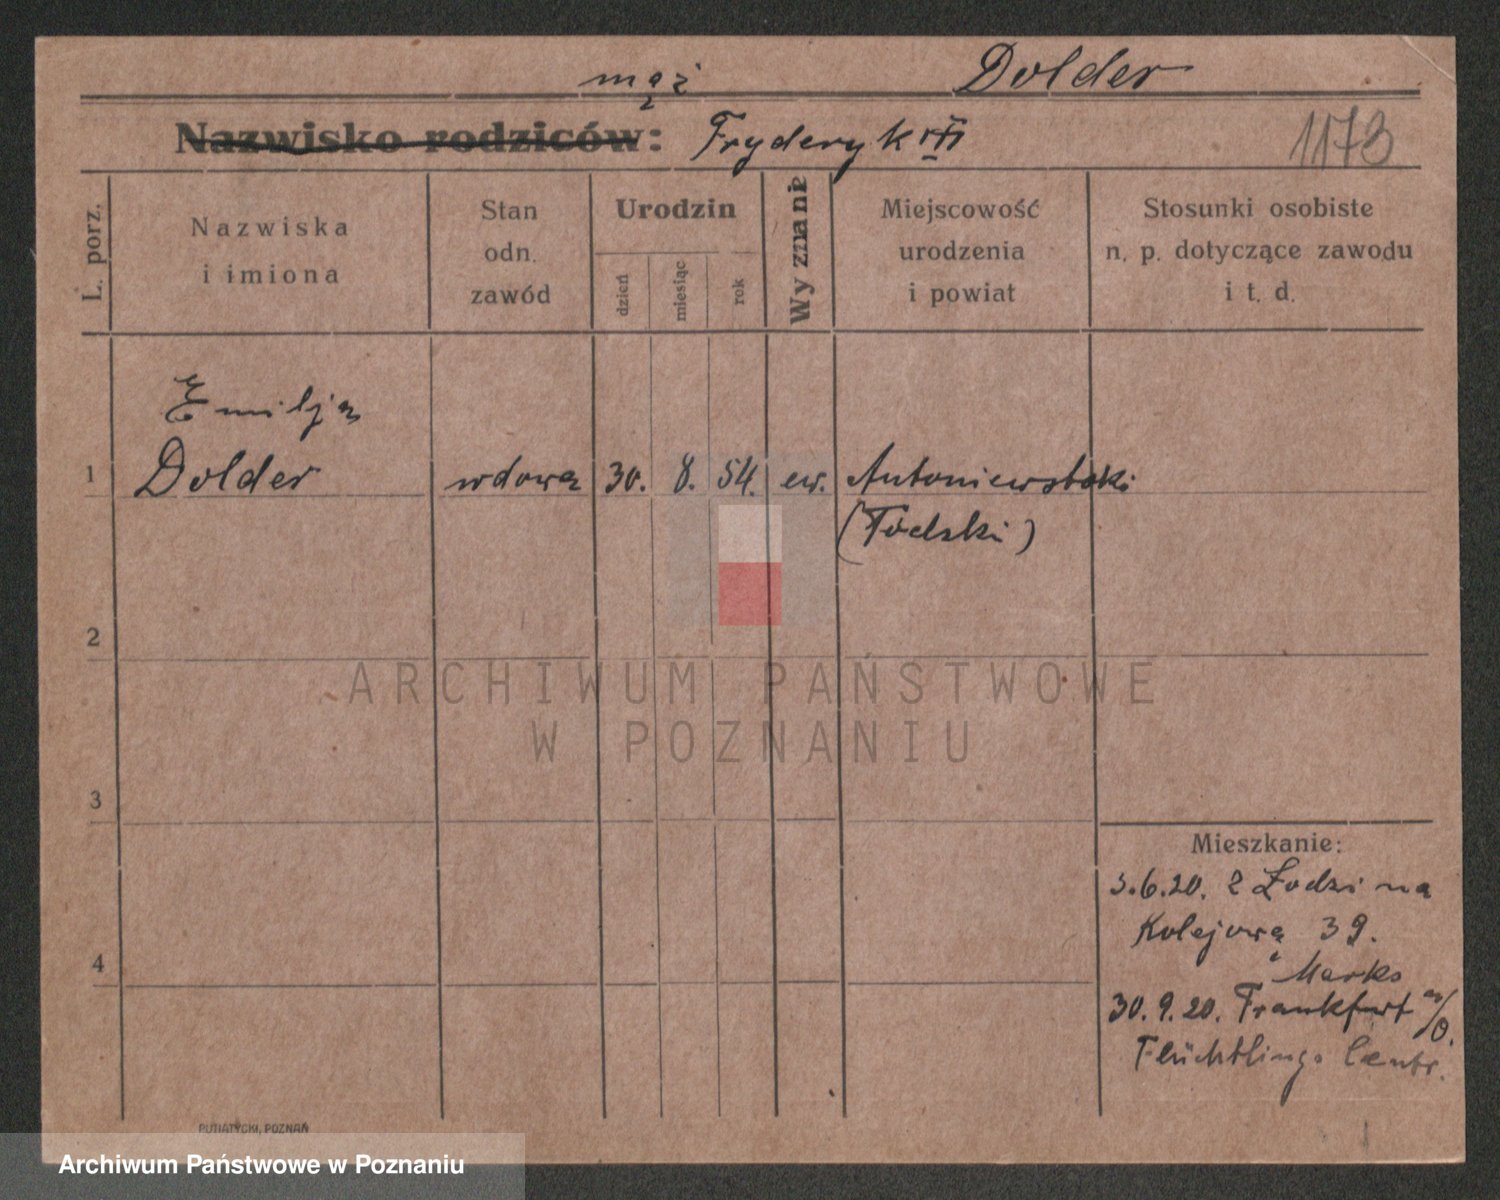 mąż Dolder
Nazwisko rodziców: Fryderyk
1173
L. porz.
Nazwiska
i imiona
Stan
odn.
zawód
Urodzin
dzień
miesiąc
rok
Wyznanie
Miejscowość
urodzenia
i powiat
Stosunki osobiste
n. p. dotyczące zawodu
i t. d.
Emilja
1 Dolder wdowa 30. 8. 54. ew.
2
3
4
Mieszkanie:
3.6.20. z Łodzi na
Kolejową 39.
Marks
30.9.20. Frankfurt a/O.
Flüchtlings Centr.
PUTIATYCKI, POZNAŃ
ARCHIWUM PAŃSTWOWE
W POZNANIU
Archiwum Państwowe w Poznaniu